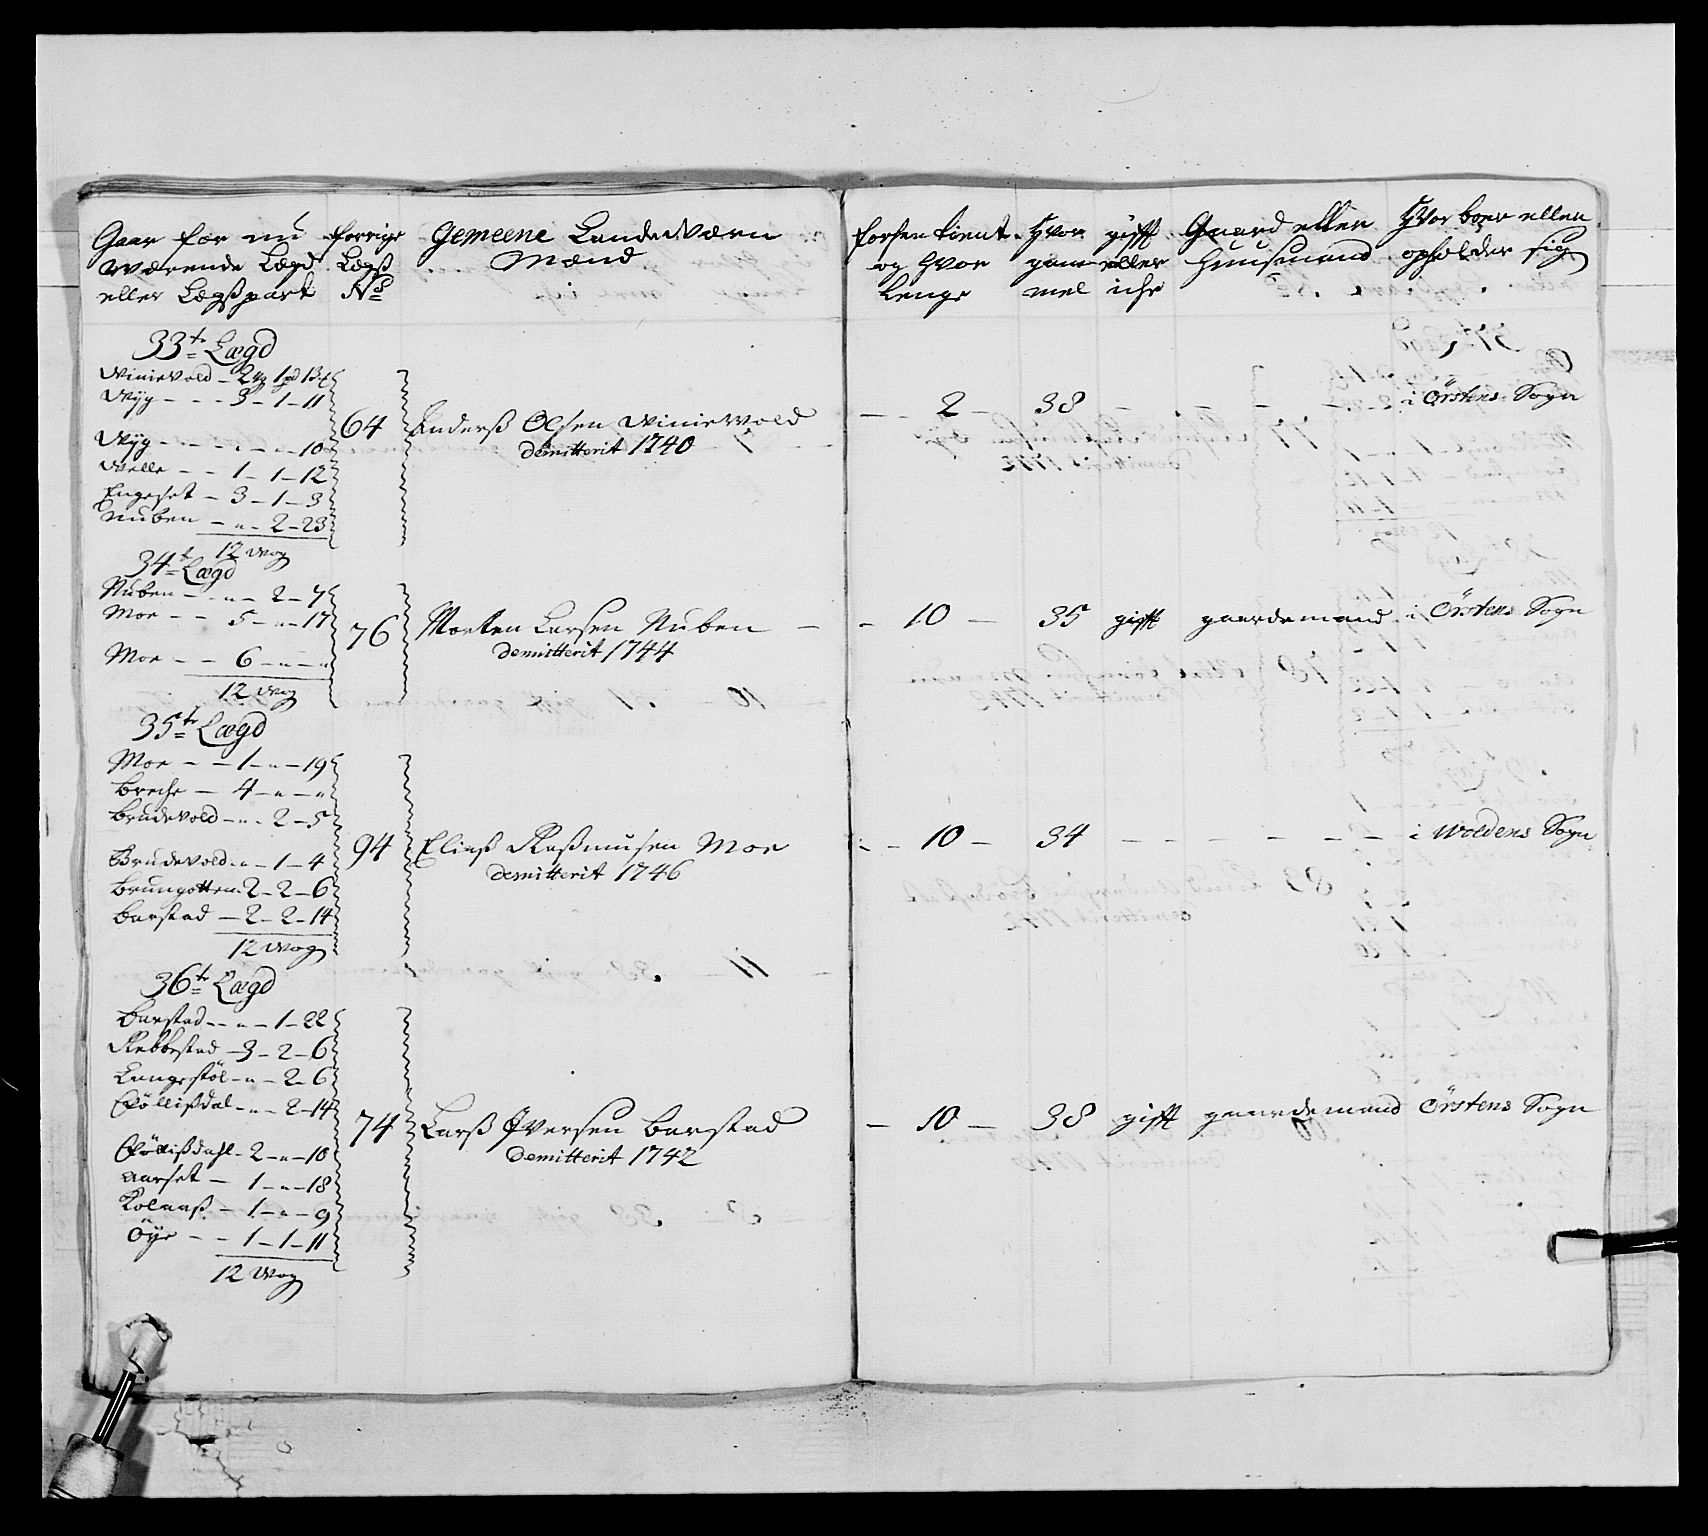 Gaar for nu
Wærende Lægd
eller Lægspart
forrige
Lægs
No
Gemeene LandeWærn
Mænd
forhen tient
og hvor
Lenge
Hvor
gam
mel
gifft
eller
iche
Gaard eller
Huusmand
Hvor boer eller
opholder sig
33te Lægd
Winiewold – 2 wog 1 pd 13
Wÿg – – – 3 – 1 – 11
Wÿg – – – " – " – 10
Welle – – 1 – 1 – 12
Engeset – 3 – 1 – 3
Nuben – " – 2 – 23
12 Wog
64
Anderß Olsen Winiewold
demitterit 1740
– – 2 – 38 – – – – – i Örstens Sogn
34te Lægd
Nuben – – " – 2 – 7
Moe – – 5 – " – 17
Moe – – 6 – " – "
12 Wog
76
Morten Larsen Nuben –
demitterit 1744
– 10 – 35 gifft gaardemand i Örstens Sogn
35te Lægd
Moe – – 1 – " – 19
Breche – 4 – " – "
Brudevold – " – 2 – 5
Brudevold – " – 1 – 4
Brungotten – 2 – 2 – 6
Barstad – 2 – 2 – 14
12 Wog
94
Eliaß Raßmusen Moe
demitterit 1746
– – 10 – 34 – – – – – – i Woldens Sogn
36te Lægd
Barstad – – " – 1 – 22
Rebbestad – 3 – 2 – 6
Langestöl – " – 2 – 6
Föllißdal – " – 2 – 14
Föllißdahl – 2 – " – 10
Aarset – 1 – " – 18
Kolaaß – 1 – " – 9
Öÿe – – 1 – 1 – 11
12 Wog
74
Larß Iversen Barstad
demitterit 1742
– 10 – 38 gifft gaardemand Örstens Sogn